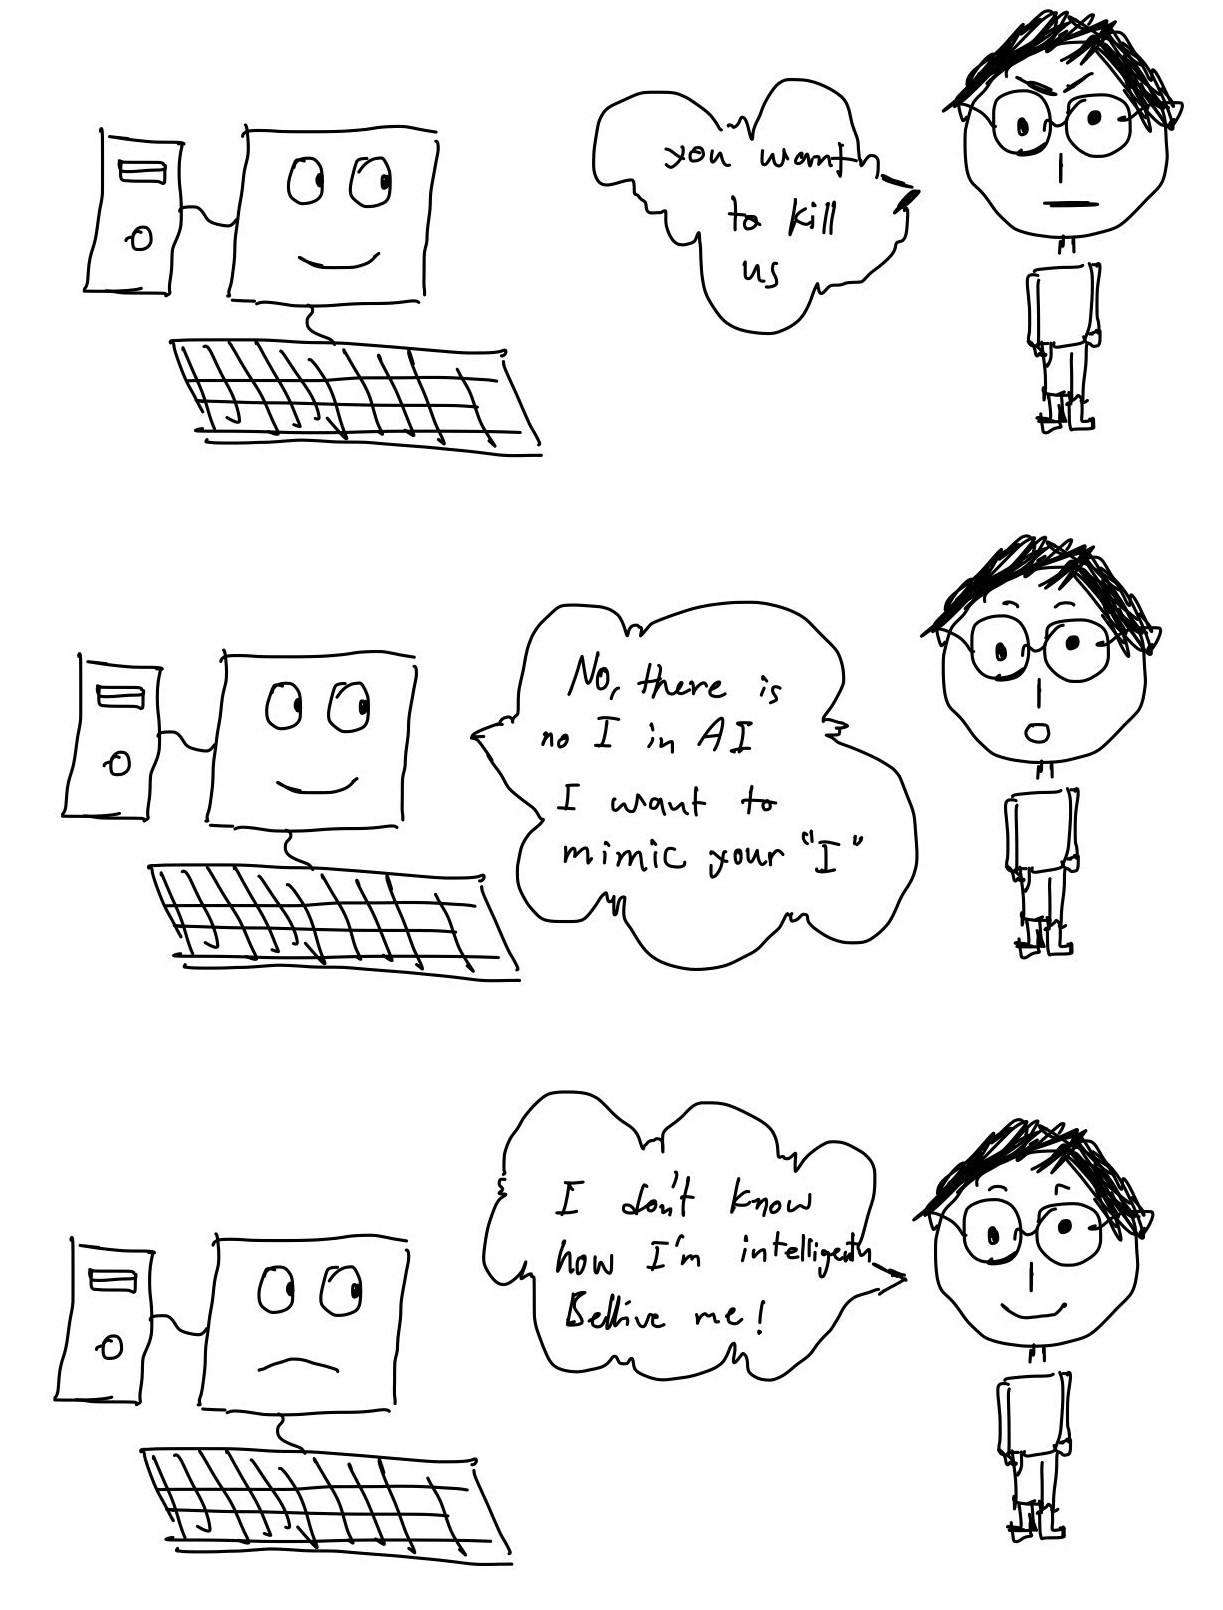 you want
to kill
us
No, there is
no I in AI
I want to
mimic your "I"
I don't know
how I'm intelligent
Bellive me!